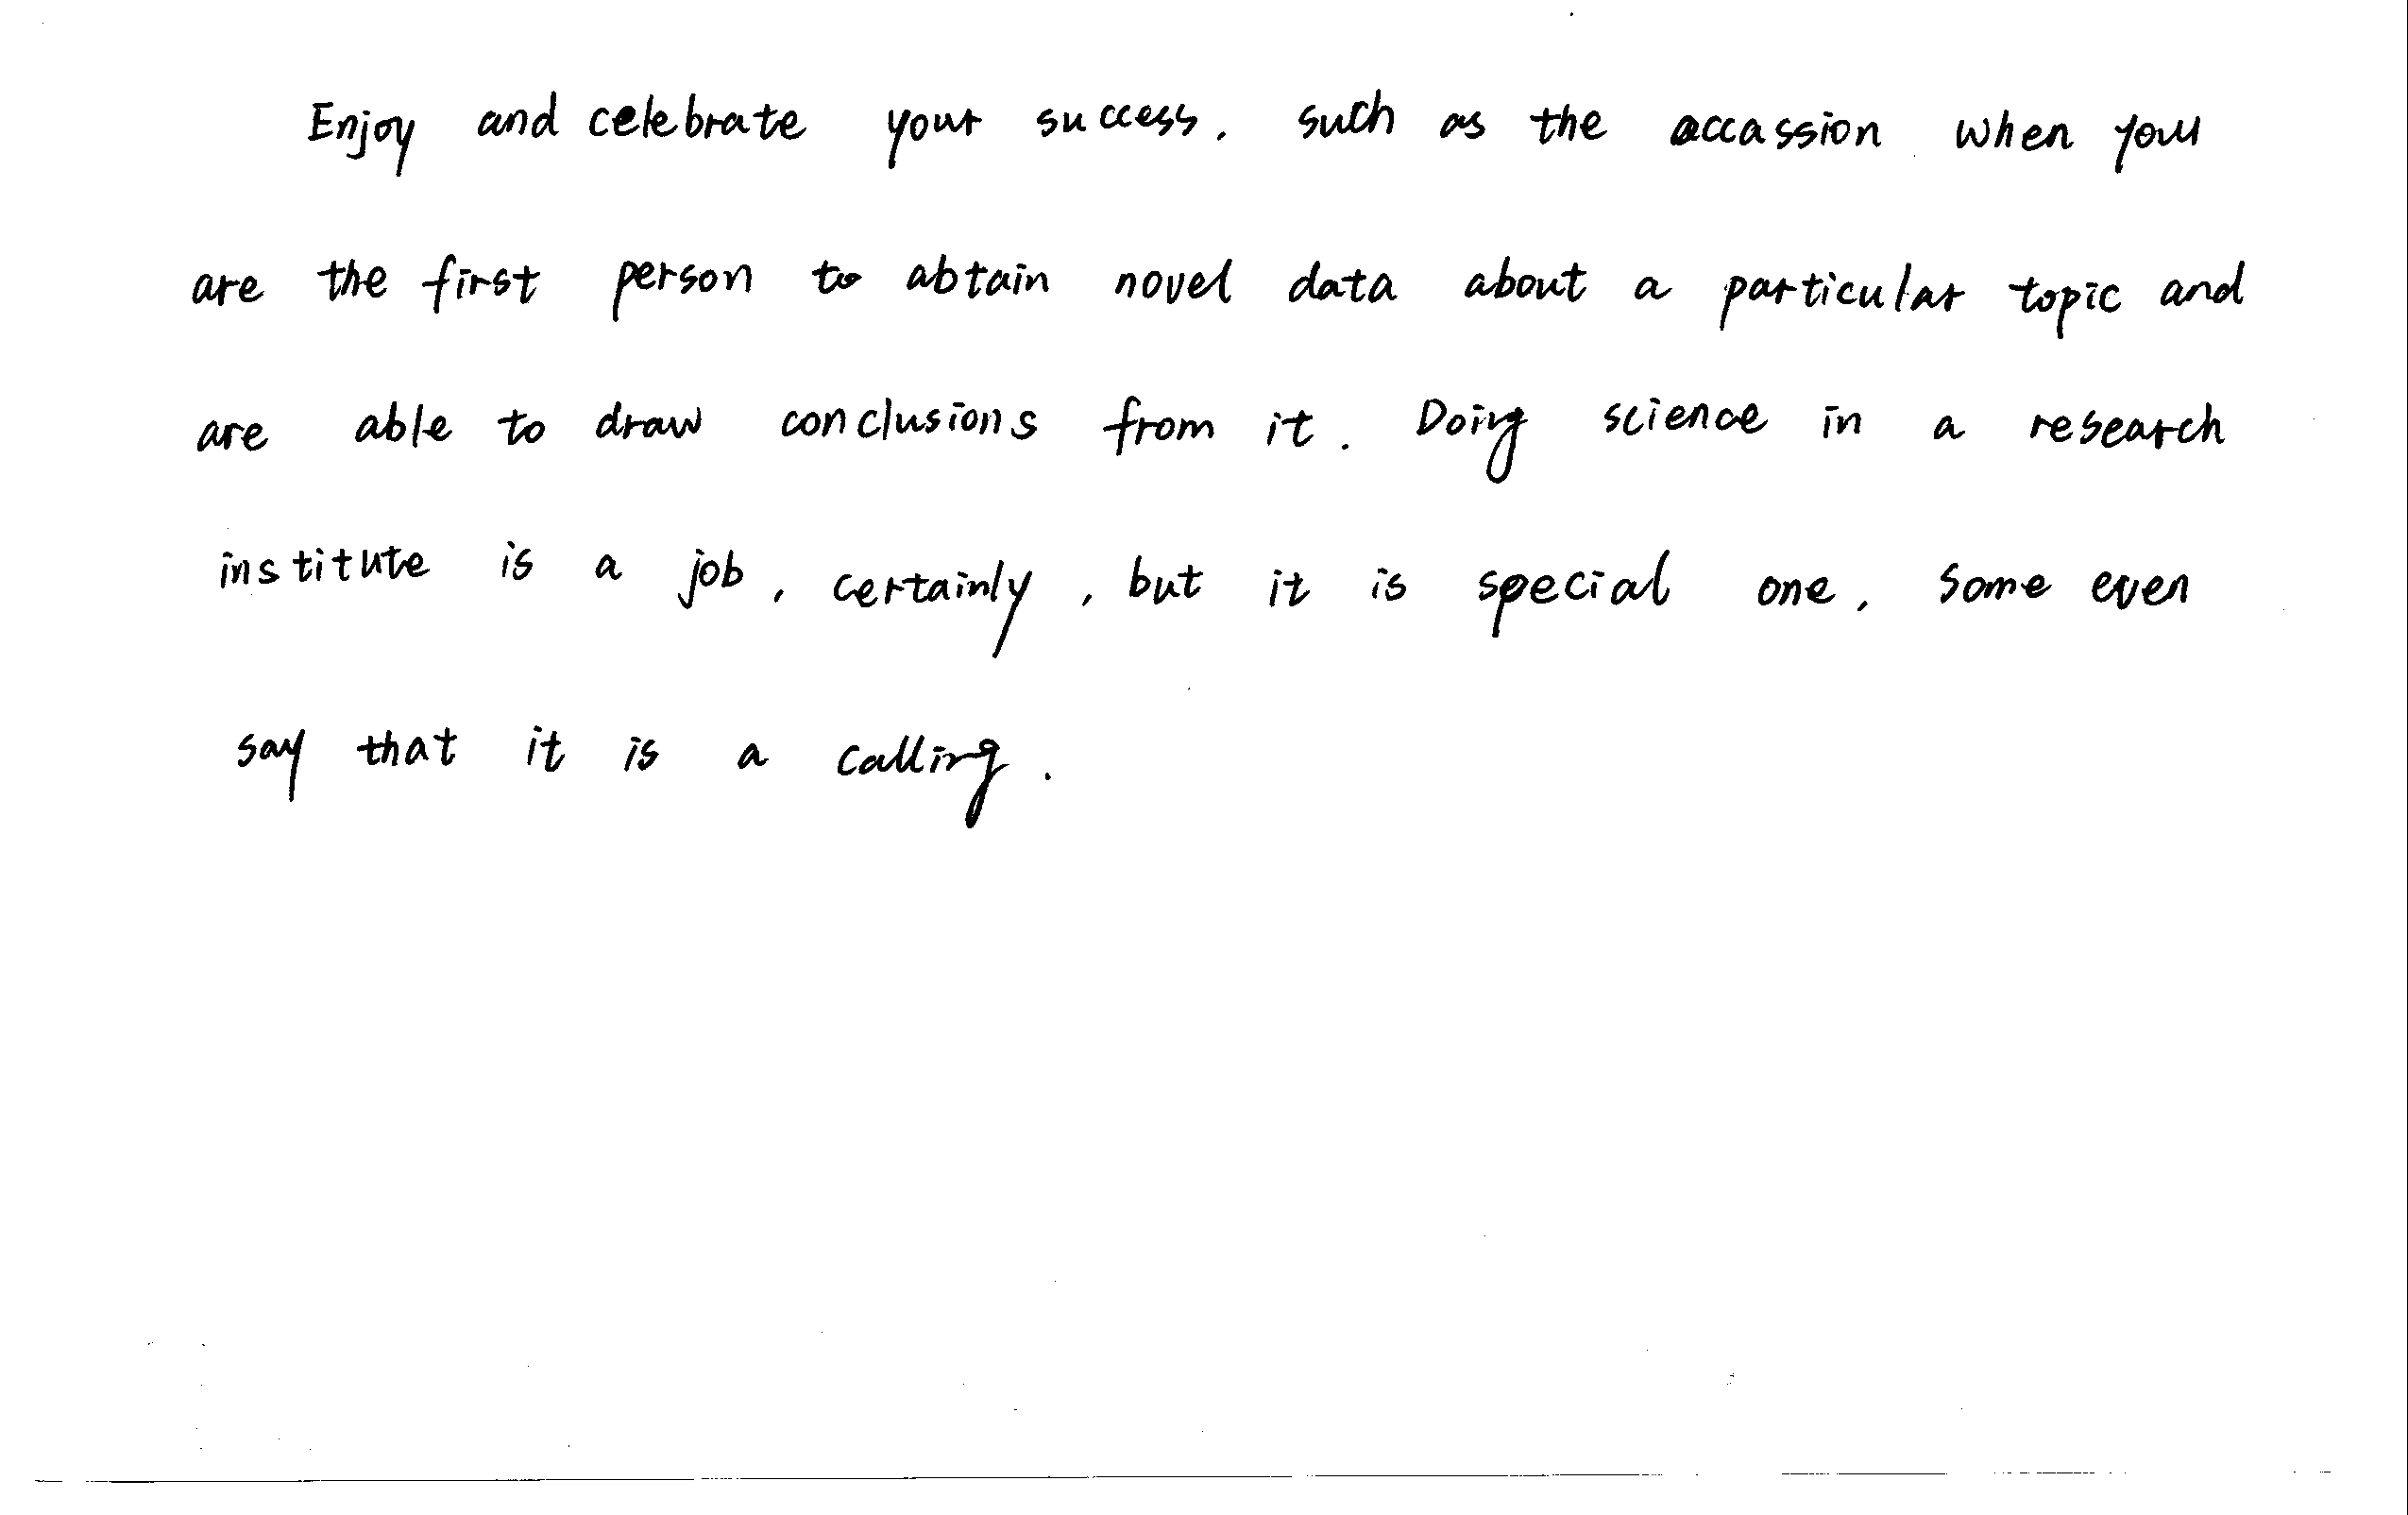 Enjoy and celebrate your success, such as the accassion when you
are the first person to abtain novel data about a particular topic and
are able to draw conclusions from it. Doing science in a research
institute is a job, certainly, but it is special one, some even
say that it is a calling.